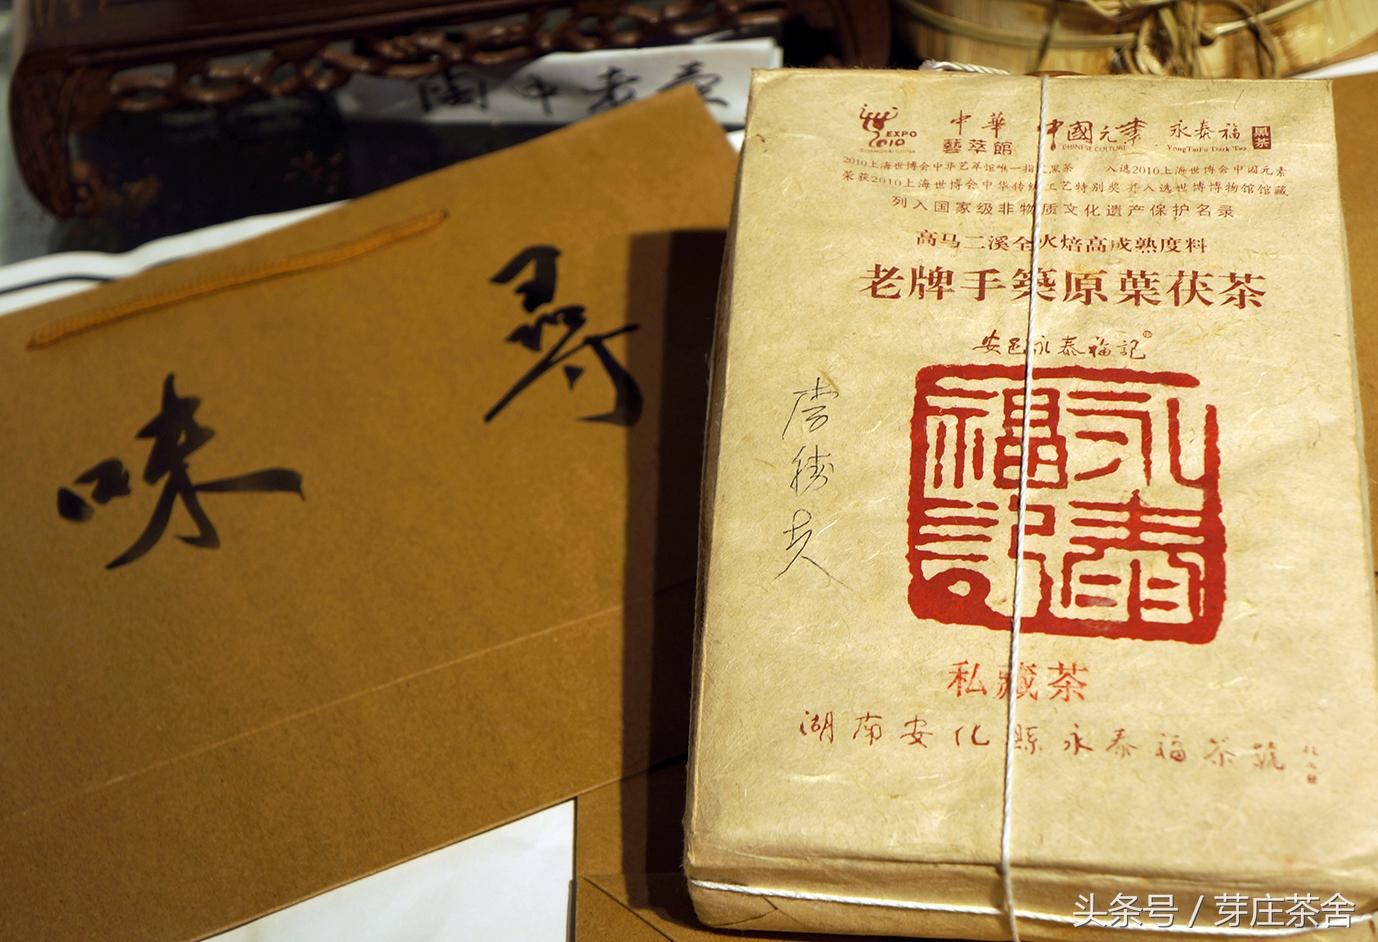 尋味
EXPO
2010
SHANGHAI CHINA
中華
藝萃館
中國元素
CHINESE CULTURE
永泰福
黑茶
YongTaiFu Dark Tea
2010上海世博会中华艺萃馆唯一指定黑茶 入选2010上海世博会中国元素
荣获2010上海世博会中华传统工艺特别奖并入选世博博物馆馆藏
列入国家级非物质文化遗产保护名录
高马二溪全火焙高成熟度料
老牌手築原葉茯茶
安邑永泰福記
永泰福記
李勝夫
私藏茶
湖南安化縣永泰福茶號
头条号 / 芽庄茶舍